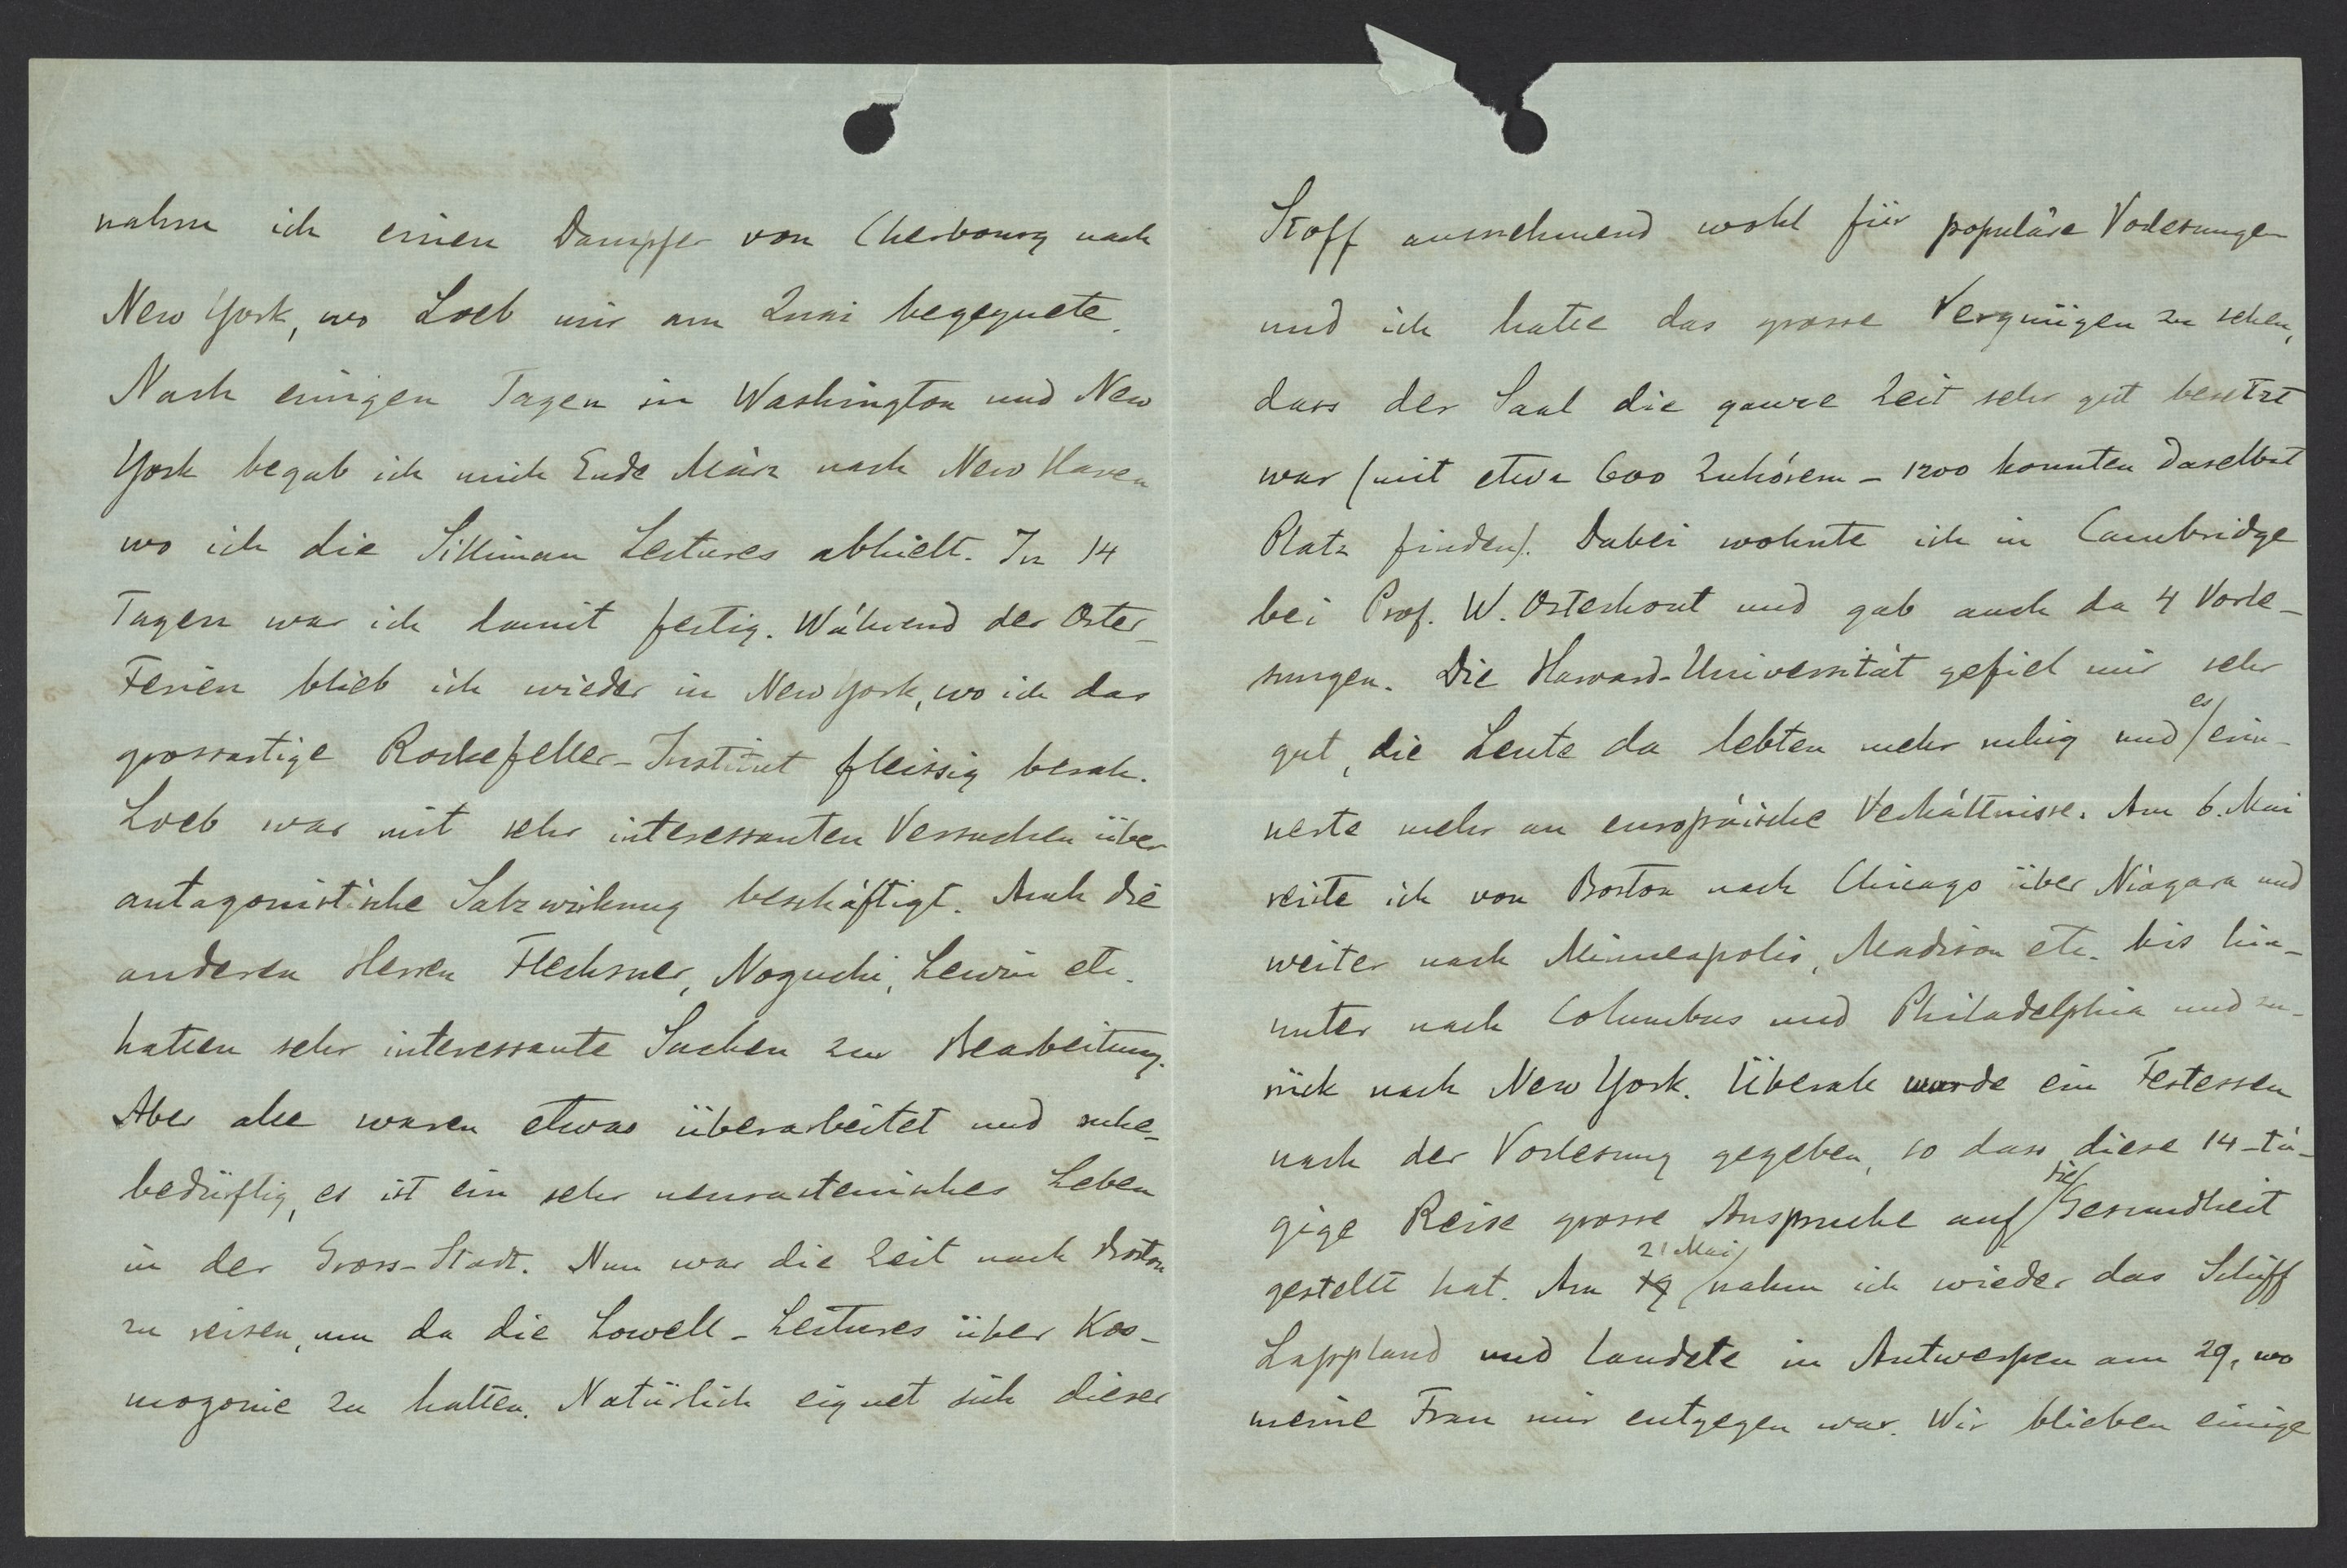 nahm ich einen Dampfer von Cherbourg nach
New York, wo Loeb mir am Quai begegnete.
Nach einigen Tagen in Washington und New
York begab ich mich Ende März nach New Haven
wo ich die Silliman Lectures abhielt. In 14
Tagen war ich damit fertig. Während der Oster-
Ferien blieb ich wieder in New York, wo ich das
grossartige Rockefeller-Institut fleissig besah.
Loeb war mit sehr interessanten Versuchen über
antagonistische Salzwirkung beschäftigt. Auch die
anderen Herren Flechsner, Noguchi, Lewin etc.
hatten sehr interessante Sachen zur Bearbeitung.
Aber alle waren etwas überarbeitet und ruhe-
bedürftig, es ist ein sehr neurastenisches Leben
in der Gross-Stadt. Nun war die Zeit nach Boston
zu reisen, um da die Lowell-Lectures über Kos-
mogonie zu halten. Natürlich eignet sich dieser
Stoff ausnehmend wohl für populäre Vorlesungen
und ich hatte das grosse Vergnügen zu sehen,
dass der Saal die ganze Zeit sehr gut besetzt
war (mit etwa 600 Zuhörern - 1200 konnten daselbst
Platz finden). Dabei wohnte ich in Cambridge
bei Prof. W. Osterhout und gab auch da 4 Vorle-
sungen. Die Harvard-Universität gefiel mir sehr
gut, die Leute da lebten mehr ruhig und es erin-
nerte mehr an europäische Verhältnisse. Am 6. Mai
reiste ich von Boston nach Chicago über Niagara und
weiter nach Minneapolis, Madison etc. bis hin-
unter nach Columbus und Philadelphia und zu-
rück nach New York. Überall wurde ein Festessen
nach der Vorlesung gegeben, so dass diese 14-tä-
gige Reise grosse Anspruche auf die Gesundheit
gestellt hat. Am 19 21 Mai nahm ich wieder das Schiff
Lappland und landete in Antwerpen am 29, wo
meine Frau mir entgegen war. Wir blieben einige